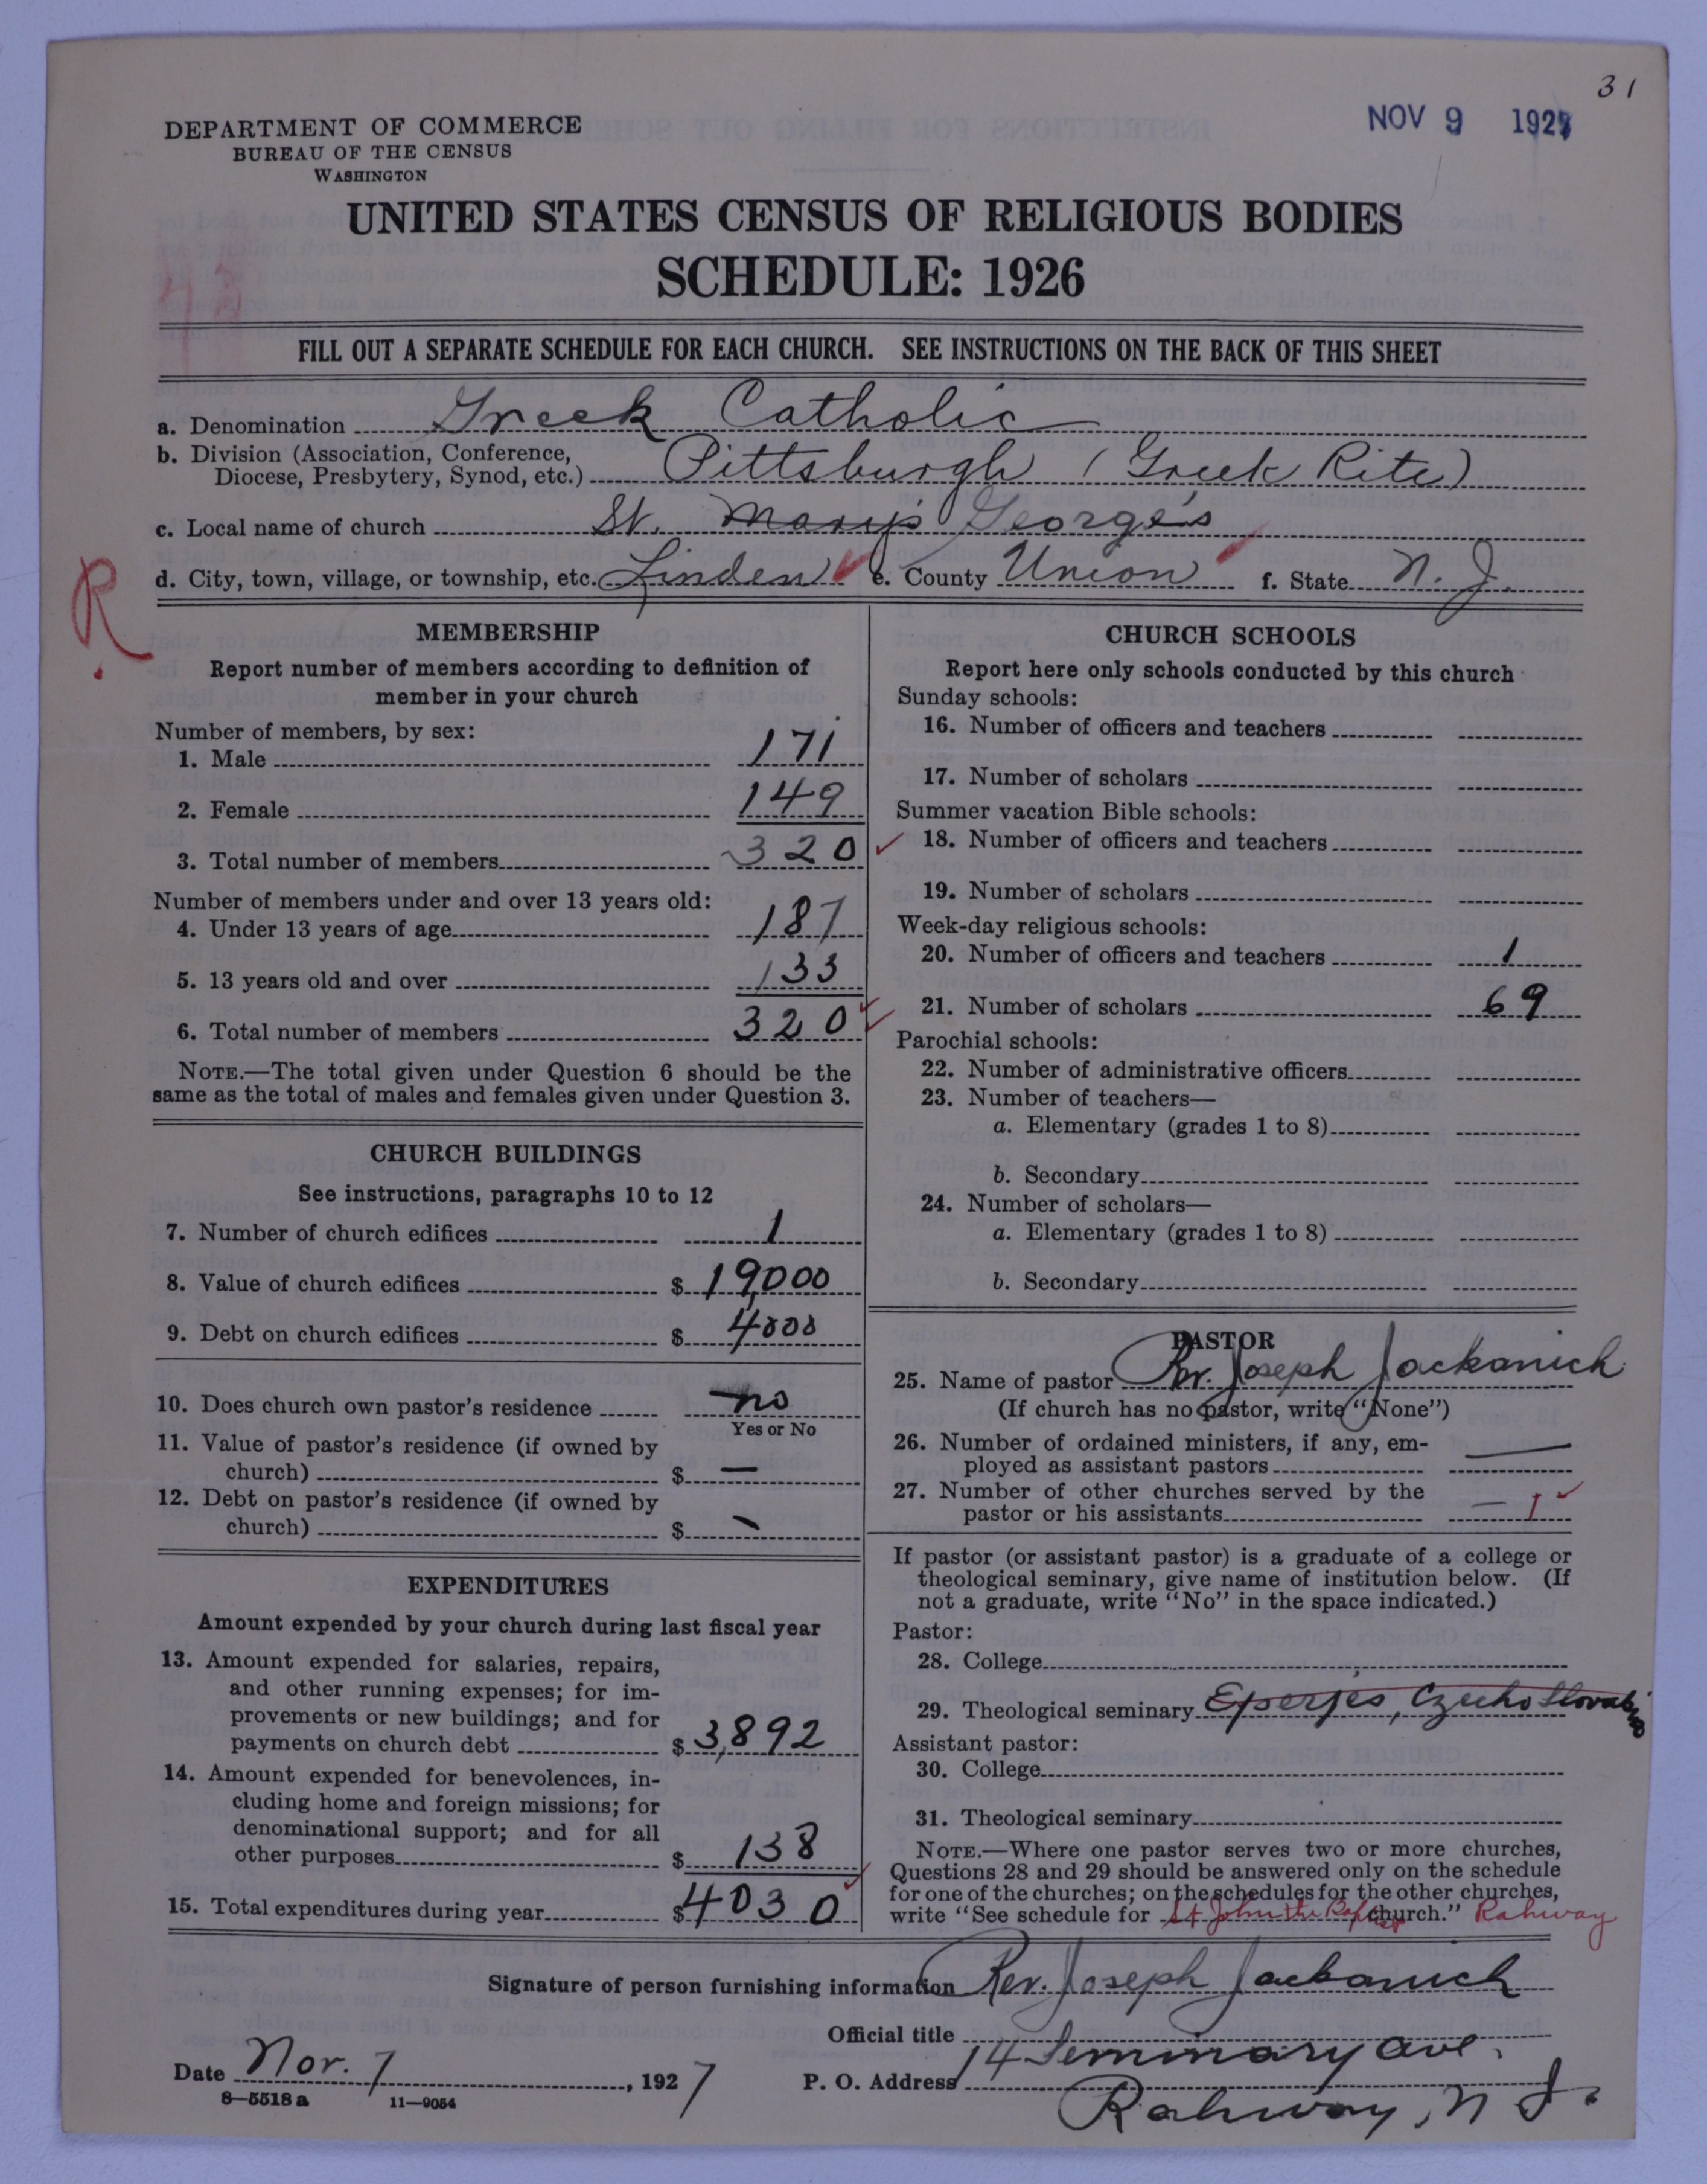 31
NOV 9 1927
DEPARTMENT OF COMMERCE
BUREAU OF THE CENSUS
WASHINGTON
UNITED STATES CENSUS OF RELIGIOUS BODIES
SCHEDULE: 1926
FILL OUT A SEPARATE SCHEDULE FOR EACH CHURCH. SEE INSTRUCTIONS ON THE BACK OF THIS SHEET
a. Denomination Greek Catholic
b. Division (Association, Conference,
Diocese, Presbytery, Synod, etc.) Pittsburgh (Greek Rite)
c. Local name of church St. Mary's George's
d. City, town, village, or township, etc. Linden e. County Union f. State N. J.
R.
MEMBERSHIP
Report number of members according to definition of
member in your church
Number of members, by sex:
1. Male 171
2. Female 149
3. Total number of members 320
Number of members under and over 13 years old:
4. Under 13 years of age 187
5. 13 years old and over 133
6. Total number of members 320
NOTE.—The total given under Question 6 should be the
same as the total of males and females given under Question 3.
CHURCH BUILDINGS
See instructions, paragraphs 10 to 12
7. Number of church edifices 1
8. Value of church edifices $ 19,000
9. Debt on church edifices $ 4000
10. Does church own pastor's residence no
Yes or No
11. Value of pastor's residence (if owned by
church) $ —
12. Debt on pastor's residence (if owned by
church) $ —
EXPENDITURES
Amount expended by your church during last fiscal year
13. Amount expended for salaries, repairs,
and other running expenses; for im-
provements or new buildings; and for
payments on church debt $ 3,892
14. Amount expended for benevolences, in-
cluding home and foreign missions; for
denominational support; and for all
other purposes $ 138
15. Total expenditures during year $ 4030
CHURCH SCHOOLS
Report here only schools conducted by this church
Sunday schools:
16. Number of officers and teachers
17. Number of scholars
Summer vacation Bible schools:
18. Number of officers and teachers
19. Number of scholars
Week-day religious schools:
20. Number of officers and teachers 1
21. Number of scholars 69
Parochial schools:
22. Number of administrative officers
23. Number of teachers—
a. Elementary (grades 1 to 8)
b. Secondary
24. Number of scholars—
a. Elementary (grades 1 to 8)
b. Secondary
PASTOR
25. Name of pastor Rev. Joseph Jackanich
(If church has no pastor, write "None")
26. Number of ordained ministers, if any, em-
ployed as assistant pastors —
27. Number of other churches served by the
pastor or his assistants — 1
If pastor (or assistant pastor) is a graduate of a college or
theological seminary, give name of institution below. (If
not a graduate, write "No" in the space indicated.)
Pastor:
28. College
29. Theological seminary Eperjes, Czecho Slovakia
Assistant pastor:
30. College
31. Theological seminary
NOTE.—Where one pastor serves two or more churches,
Questions 28 and 29 should be answered only on the schedule
for one of the churches; on the schedules for the other churches,
write "See schedule for St John the Baptist church." Rahway
Signature of person furnishing information Rev. Joseph Jackanich
Official title
Date Nov. 7, 1927 P. O. Address 14 Seminary Ave.
Rahway, N. J.
8—5518 a 11—9054